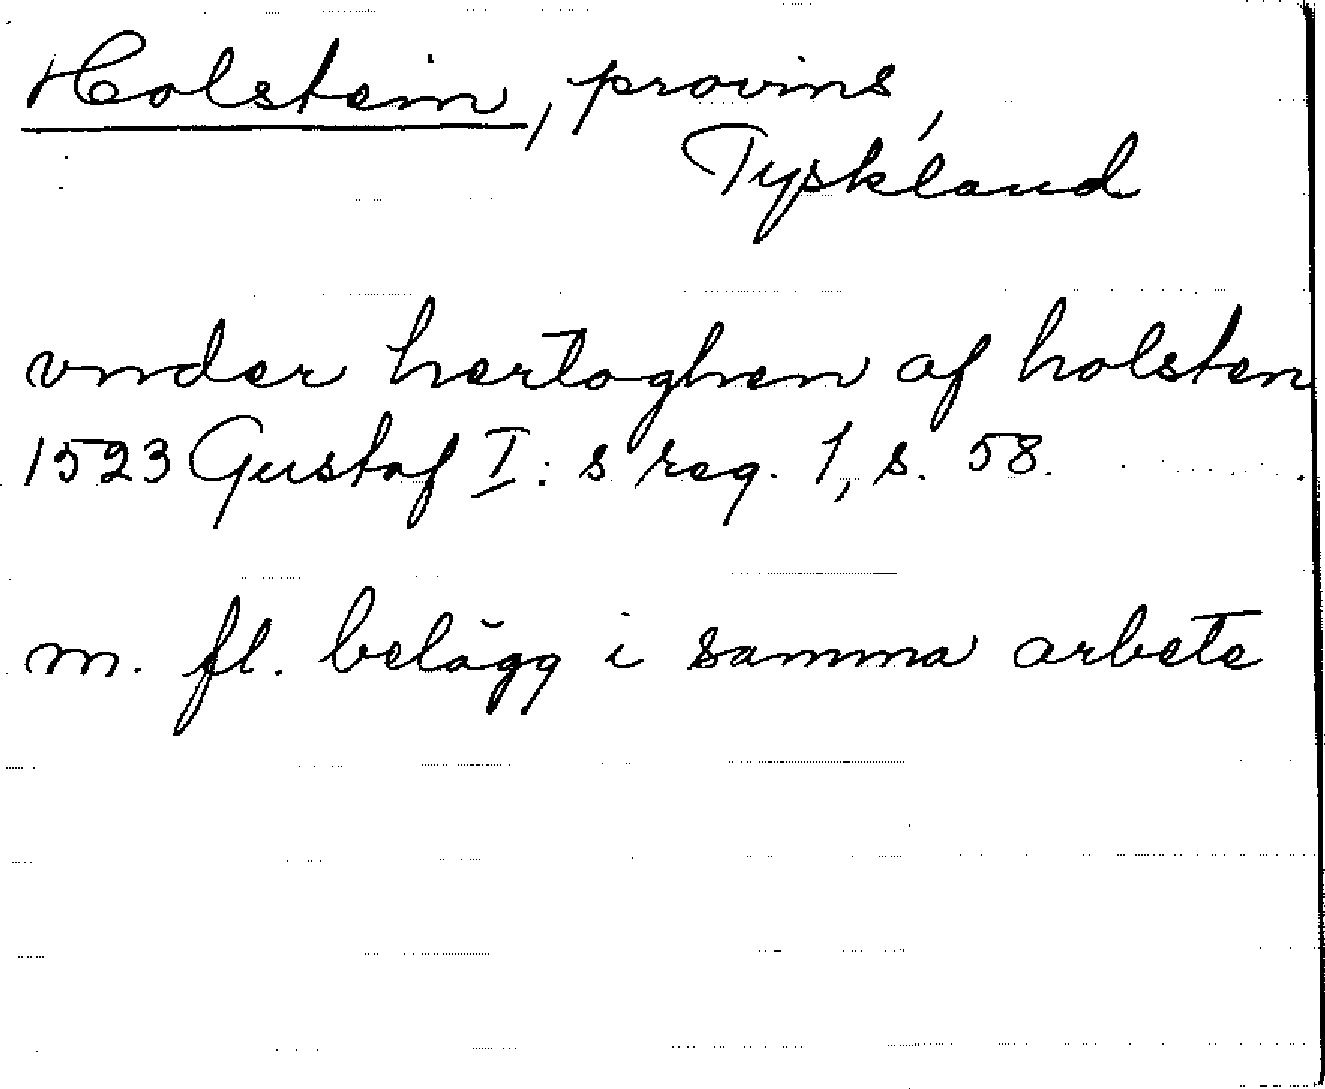 Holstein, provins,
Tyskland
vnder hertoghen af holsten
1523 Gustaf I: s reg. 1, s. 58.
m. fl. belägg i samma arbete